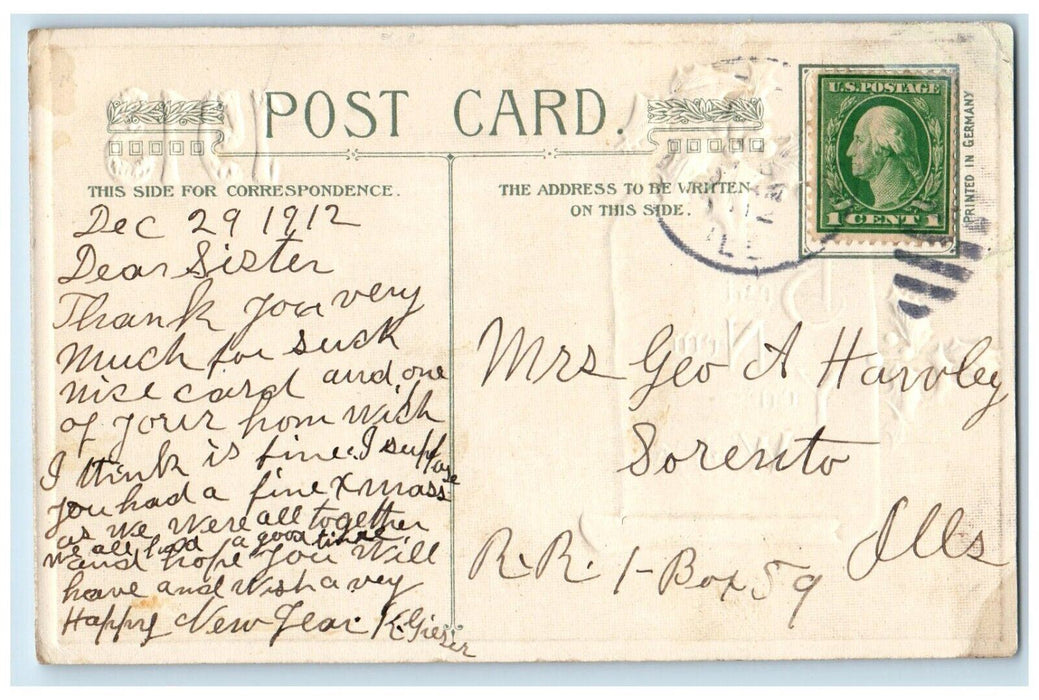 POST CARD.
THIS SIDE FOR CORRESPONDENCE.
Dec 29 1912
Dear Sister
Thank you very
much for such
nise card and one
of your hom wich
I think is fine. I suppose
you had a fine Xmass
as we were all together
we all had a good time
and hope you will
have and wish a vey
Happy New Year. K. Gieser
THE ADDRESS TO BE WRITTEN
ON THIS SIDE.
U.S. POSTAGE
1 CENT 1
PRINTED IN GERMANY
ILL.
Mrs Geo A Hawley
Sorento
Ills
R.R. 1-Box 59